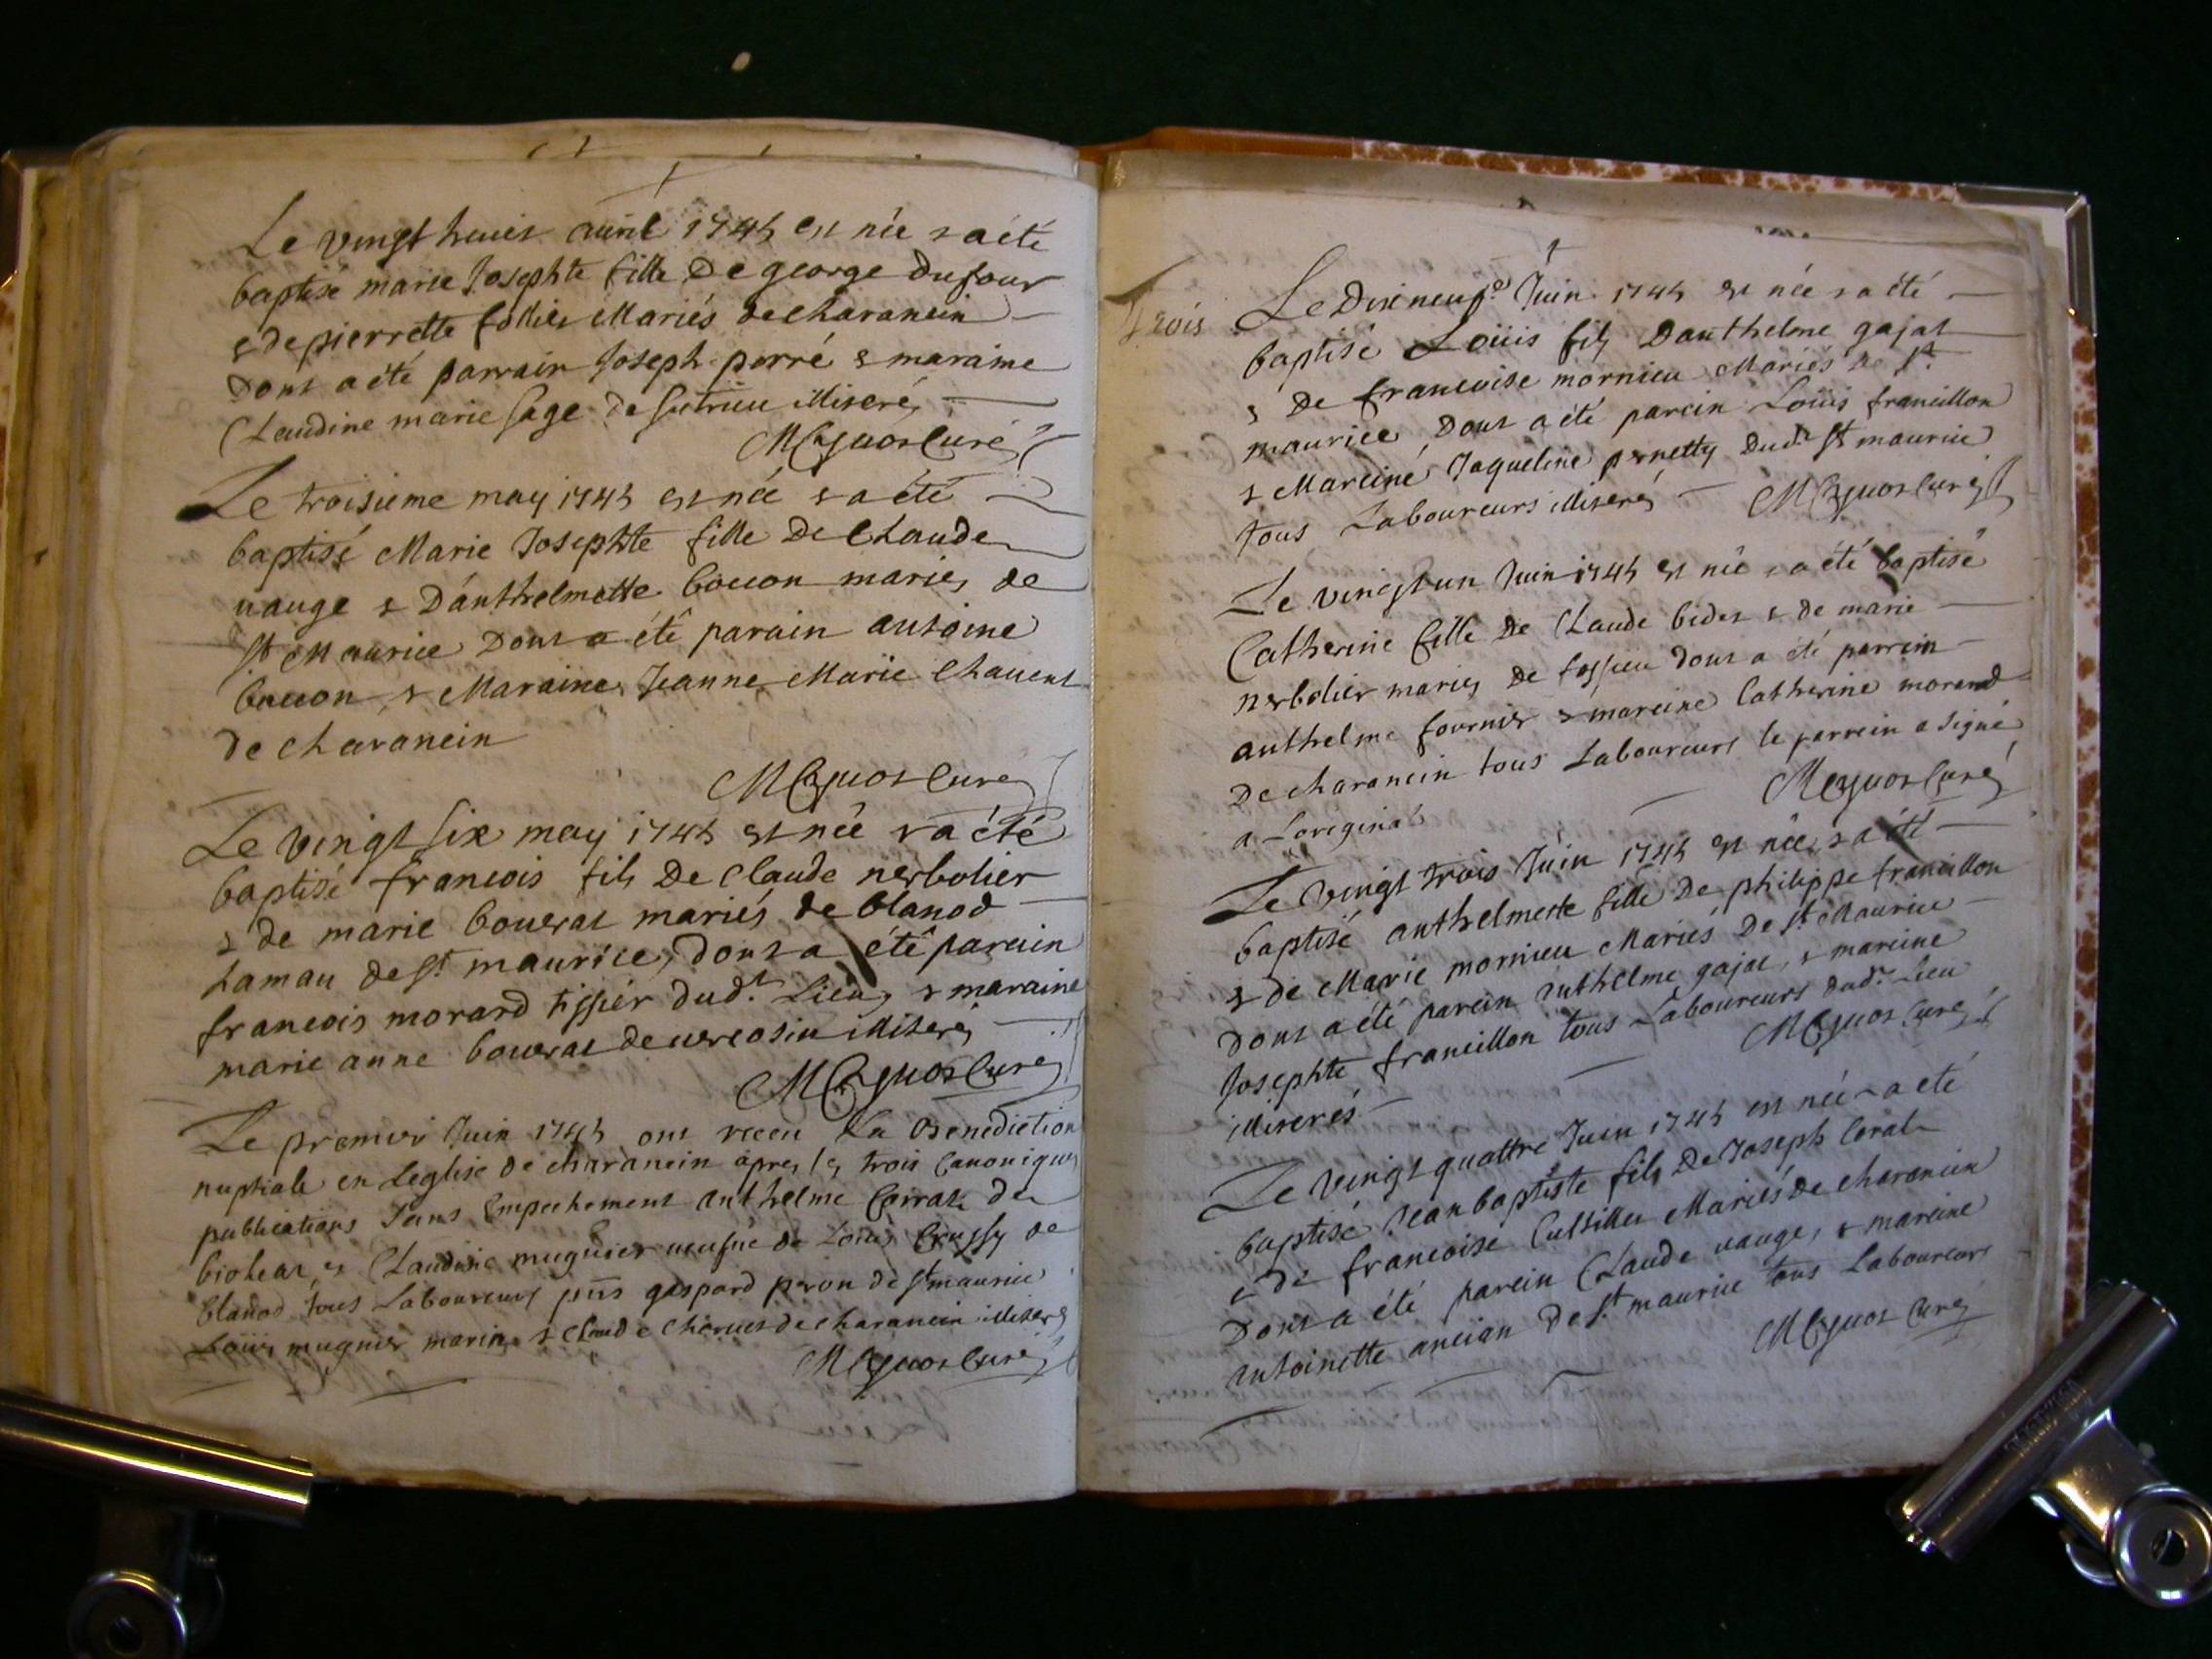 Le vingt huict avril 1745 est née & a été
baptisé marie Josephte fille De george dufour
& de pierrette follier Mariés de charancin
Dont a été parrain Joseph perré & maraine
Claudine marie sage de sutrieu illiseré
MCaguos Curé
Le troisieme may 1745 est née & a été
baptisé Marie Josephte fille De Claude
vauge & D'anthelmette bouvon mariés de
St Maurice Dont a été parain antoine
bouvon, & Maraine Jeanne Marie Chavent
de charancin
Curé
Le vingt six may 1745 est née & a été
baptisé francois fils De Claude nerbolier
& de marie bouvrat mariés de blanod
hamau de St. maurice, dont a été parain
francois morard tissier dud.t Lieu, & maraine
marie anne bouvrat de vercosin illiseré
Curé
Le premier Juin 1745 ont receu La Benediction
nuptiale en Leglise de charancin apres les trois Canoniques
publications sans Empechement anthelme Corrat de
bioleaz & Claudine mugnier veufue de Louis de
blanod tous Laboureurs pnts gaspard peron de St maurice
Loüis mugnier marin & Claude de charancin illiseré
Curé
Trois
Le Dix neufe Juin 1745 est née & a été
baptisé Loüis fils Danthelme gajat
& De francoise mornieu Mariés de St.
maurice Dont a été parein Loüis francillon
& Mareine Jaqueline pernetty Dud.t St maurice
tous Laboureurs illiserés Curé
Le vingt un Juin 1745 est née & a été baptisé
Catherine fille De Claude bidet & de marie
nerbolier mariés De fossieu dont a été parrein
anthelme fournier & mareine Catherine morend
De charancin tous Laboureurs le parrein a signé
a Loriginal Curé
Le vingt trois Juin 1745 est née & a été
baptisé anthelmette fille De philippe francillon
& de Marie mornieu Mariés De St Maurice
Dont a été parein anthelme gajat, & mareine
Josephte francillon tous Laboureurs dud.t Lieu
illiserés Curé
Le vingt quattre Juin 1745 est née & a été
baptisé Jean baptiste fils De Joseph Corat
& de francoise Cultillier Mariés de charancin
Dont a été parein Claude vauge, & mareine
antoinette ancian De St maurice tous Laboureurs
Curé